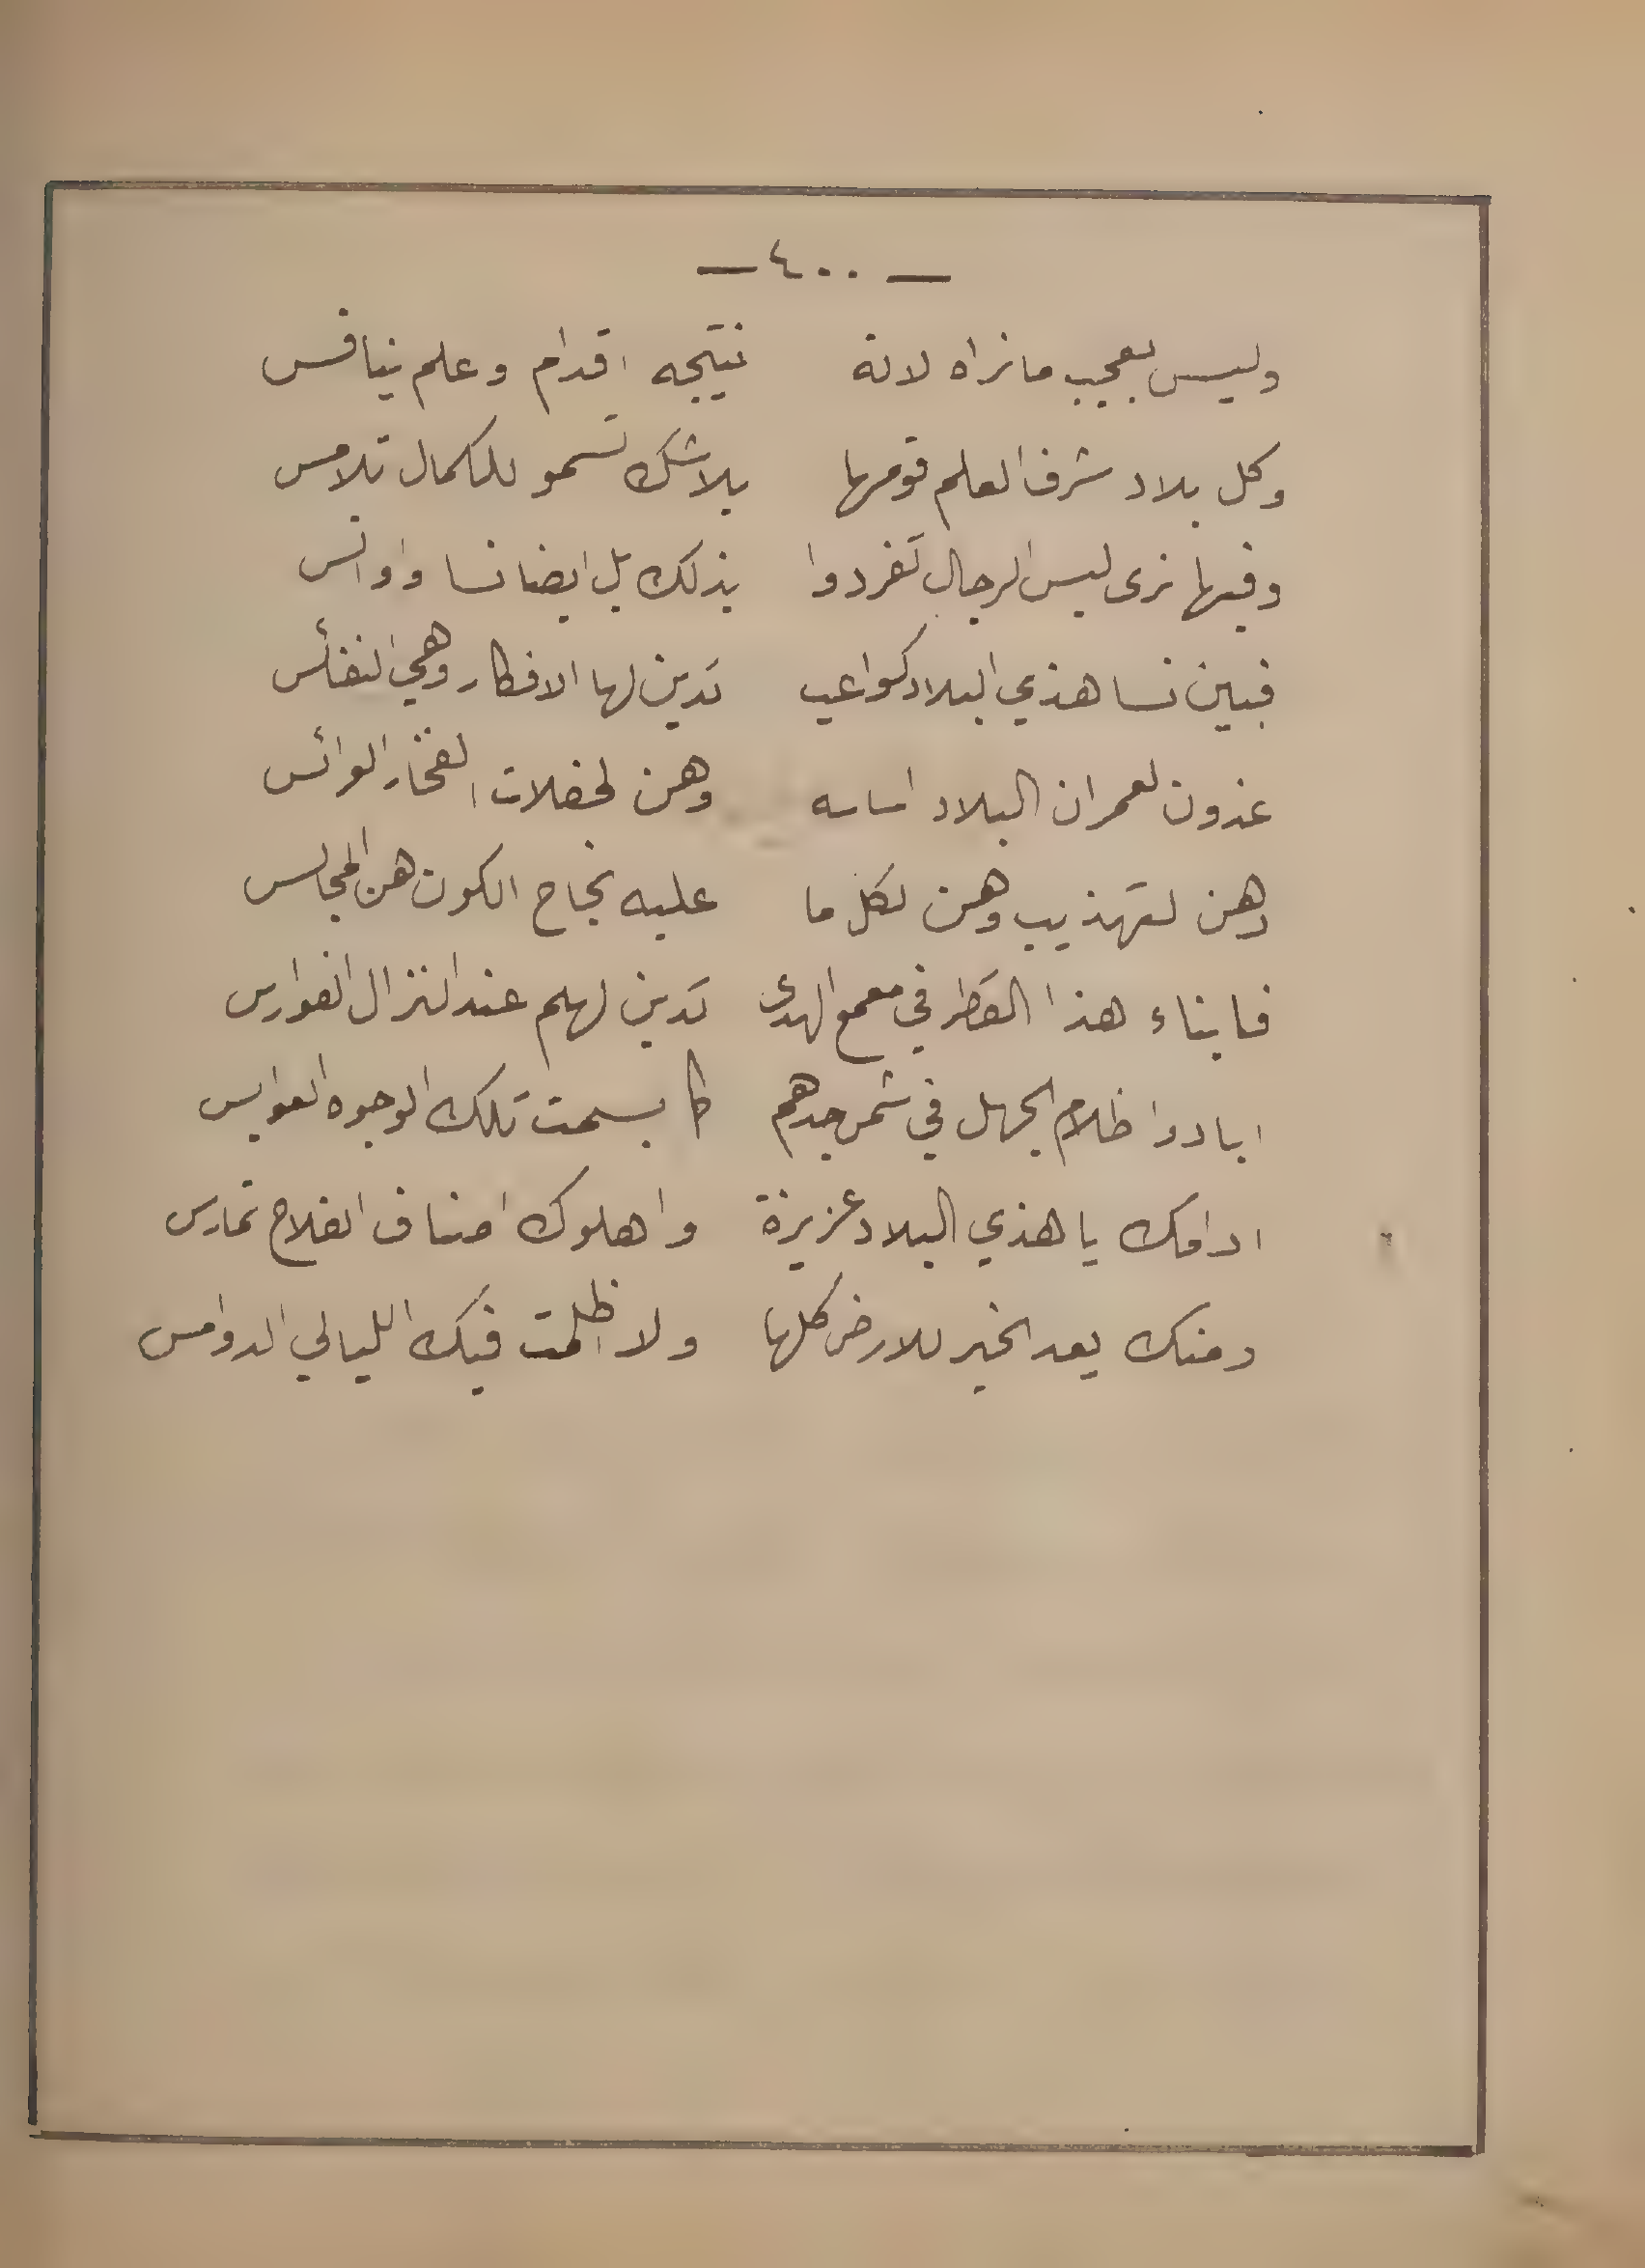 — ٤٠٠ —
وليس بعجيب ما نراه لانه نتيجه اقدام وعلم ينافس
وكل بلاد شرف العلم قومها بلا شك تسمو للكمال تلامس
وفيها نرى ليس الرجال تفردوا بذلك بل ايضا نسا واوانس
فبين نسا هذي البلاد كواعب تدين لها الافكار وهي النفائس
غدون لعمران البلاد اساسه وهن لحفلات الفخار العرائس
وهن لتهذيب وهن لكل ما عليه نجاح الكون هن المجالس
فابناء هذا القطر في معمع الهدى تدين لهلم عند النزال الفوارس
ابادوا ظلام الجهل في شمس جدهم كما بسمت تلك الوجوه العوابس
ادامك يا هذي البلاد عزيزة واهلوك اصناف الفلاح تمارس
ومنك يعد الخير للارض كلها ولا اظلمت فيك الليالي الدوامس